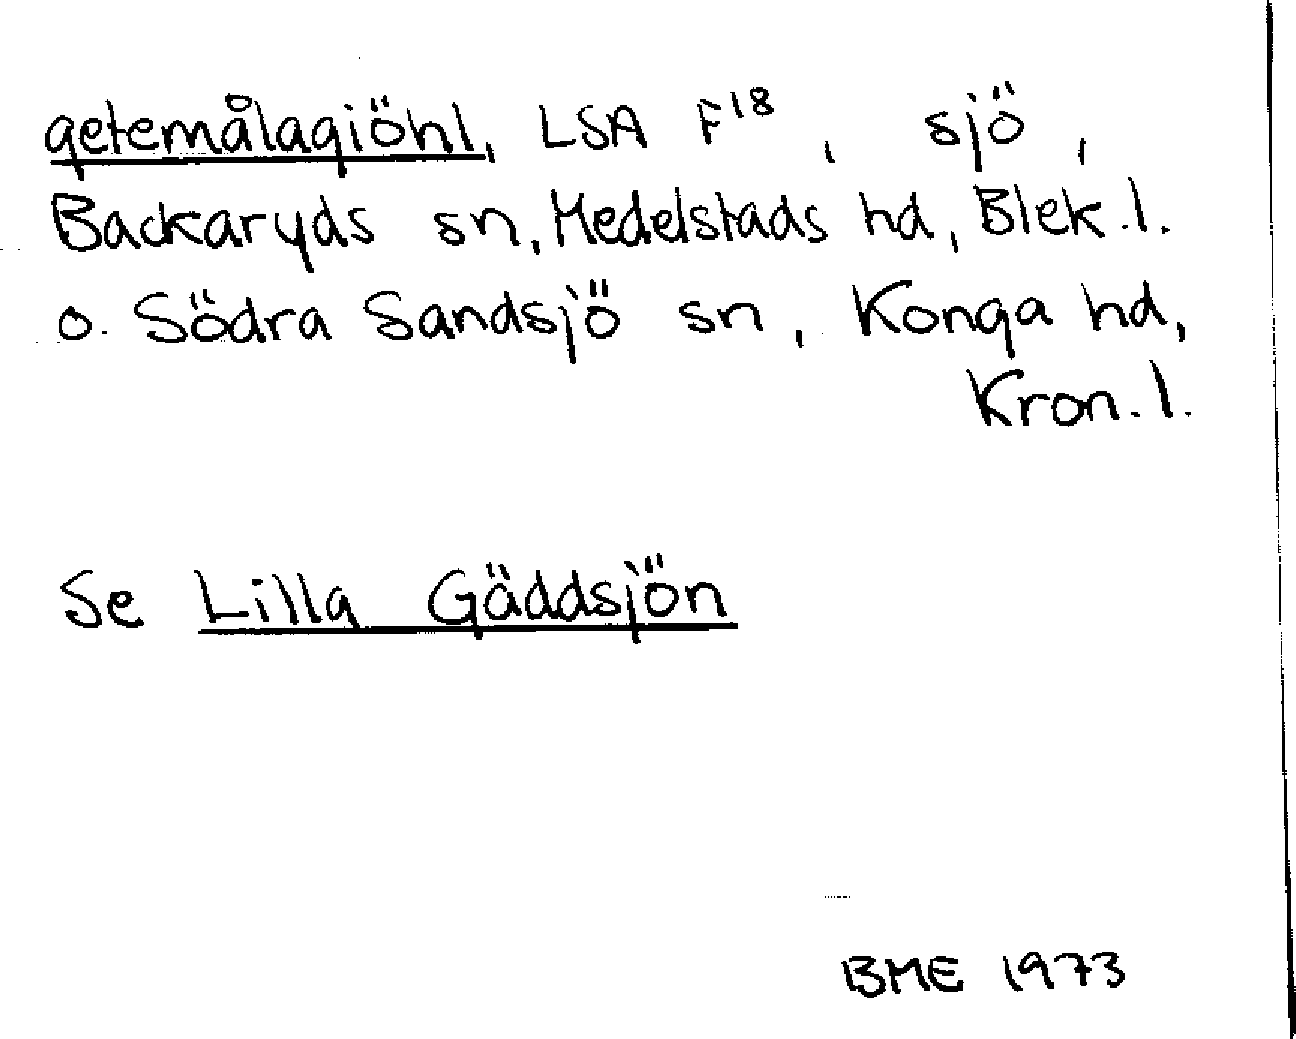 getemålagiöhl, LSA F18, sjö,
Backaryds sn, Medelstads hd, Blek. l.
o. Södra Sandsjö sn, Konga hd,
Kron. l.
Se Lilla Gäddsjön
BME 1973